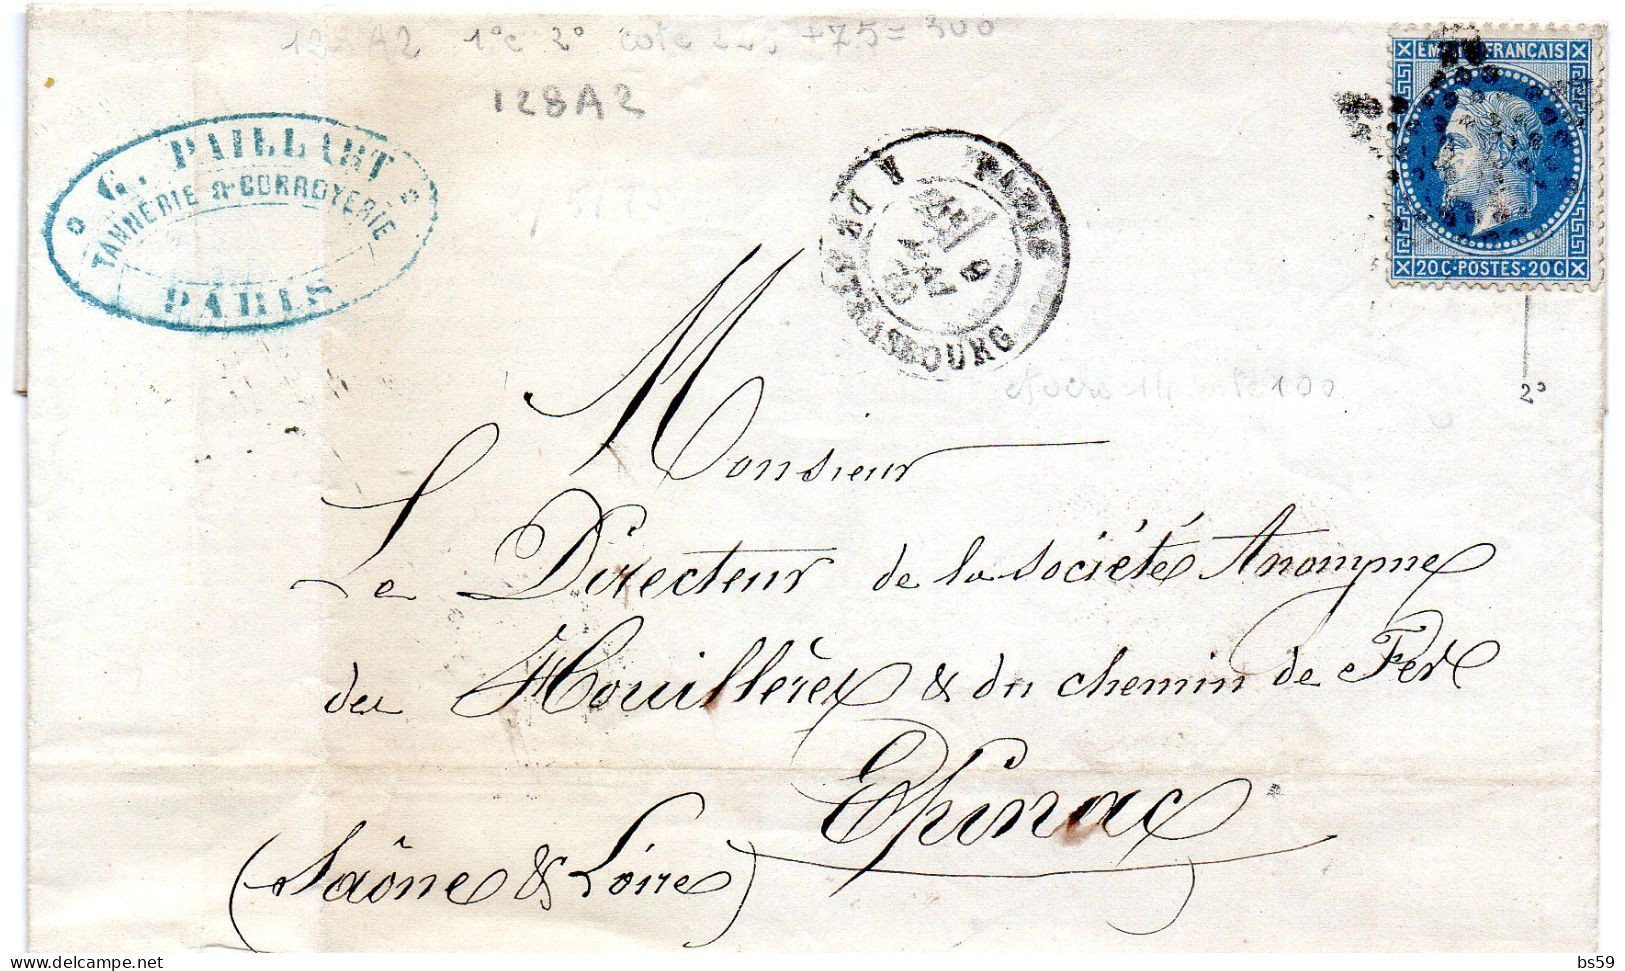 128A2 1°c 2° cote 225 +75= 300
128A2
G. PAILLART
TANNERIE & CORROYERIE
PARIS
PARIS
R. DE STRASBOURG
9
MAI
EMPIRE FRANÇAIS
20 C·POSTES·20 C
100
2°
Monsieur
Le Directeur de la Société Anonyme
des Houillères & du chemin de Fer
Epinac
(Saône & Loire)
www.delcampe.net
bs59